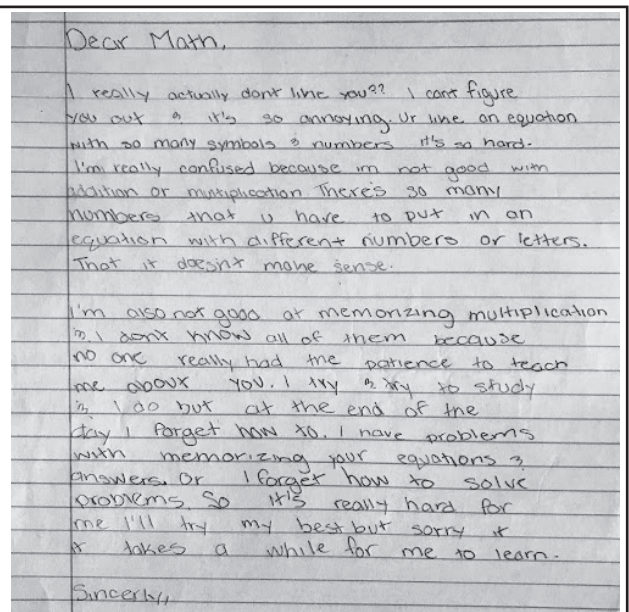 Dear Math,
I really actually dont like you?? I cant figure
you out & it's so annoying. Ur like an equation
with so many symbols & numbers it's so hard.
I'm really confused because im not good with
addition or multiplication. There's so many
numbers that u have to put in an
equation with different numbers or letters.
That it doesn't make sense.
I'm also not good at memorizing multiplication
& I dont know all of them because
no one really had the patience to teach
me about you. I try & try to study
& I do but at the end of the
day I forget how to. I have problems
with memorizing your equations &
answers. Or I forget how to solve
problems. So it's really hard for
me I'll try my best but sorry if
it takes a while for me to learn.
Sincerly,